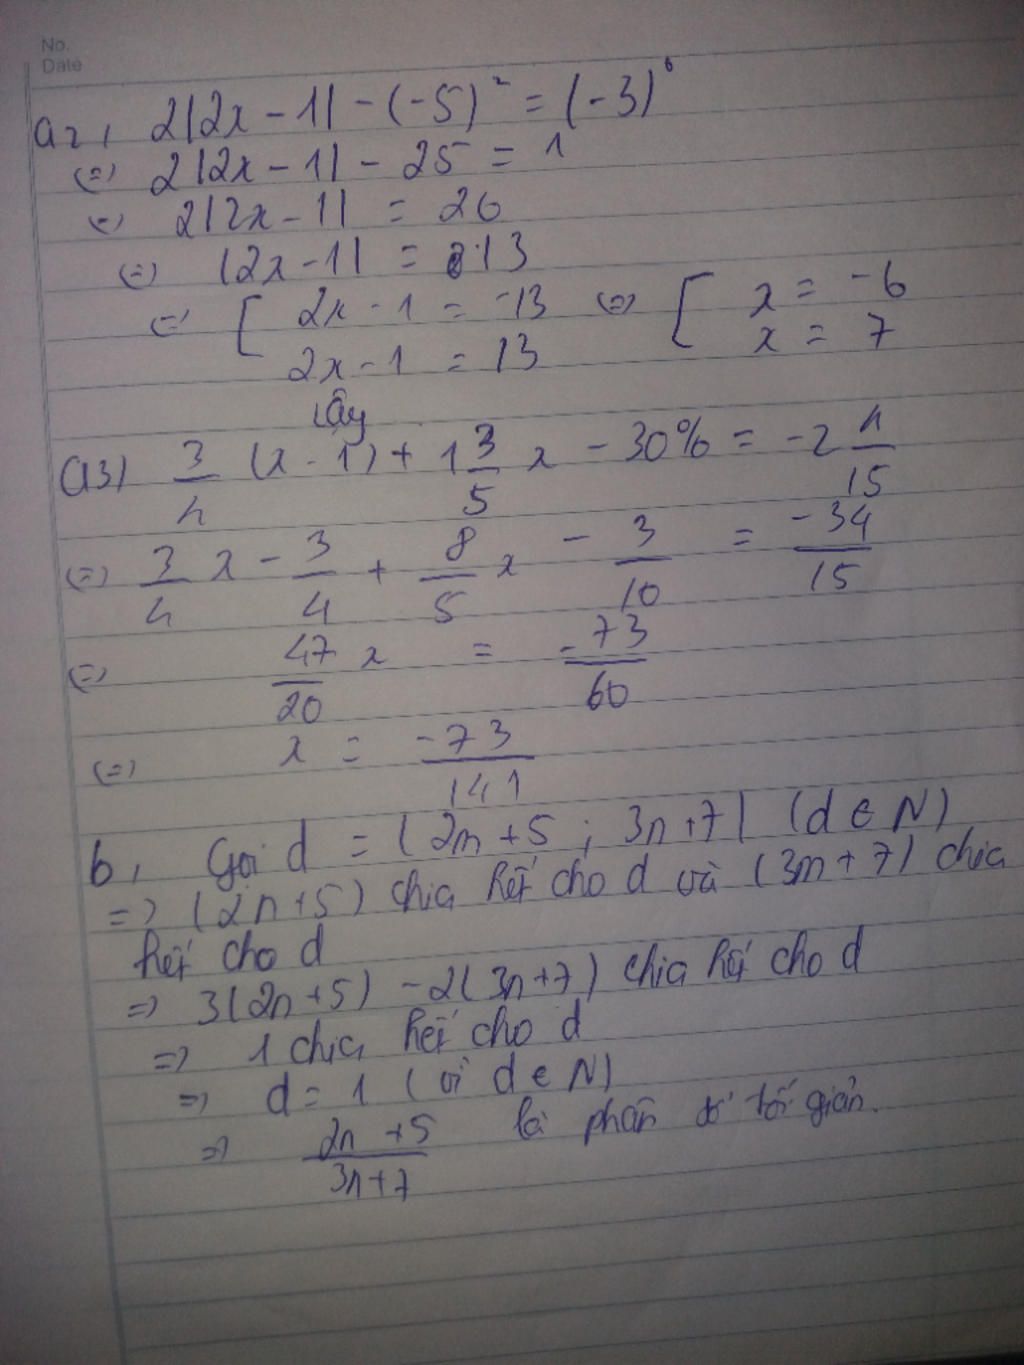 No.
Date
a2, 2|2x - 1| - (-5)² = (-3)⁰
(=) 2|2x - 1| - 25 = 1
(=) 2|2x - 1| = 26
(=) |2x - 1| = 13
(=) [ 2x - 1 = -13 (=) [ x = -6
2x - 1 = 13 x = 7
Vậy
a3) 3/4 (x - 1) + 1 3/5 x - 30% = -2 4/15
(=) 3/4 x - 3/4 + 8/5 x - 3/10 = -34/15
(=) 47/20 x = -73/60
(=) x = -73/141
b, Gọi d = (2n + 5 ; 3n + 7) (d ∈ N)
=> (2n + 5) chia hết cho d và (3n + 7) chia
hết cho d
=> 3(2n + 5) - 2(3n + 7) chia hết cho d
=> 1 chia hết cho d
=> d = 1 (vì d ∈ N)
=> 2n + 5/3n + 7 là phân số tối giản.